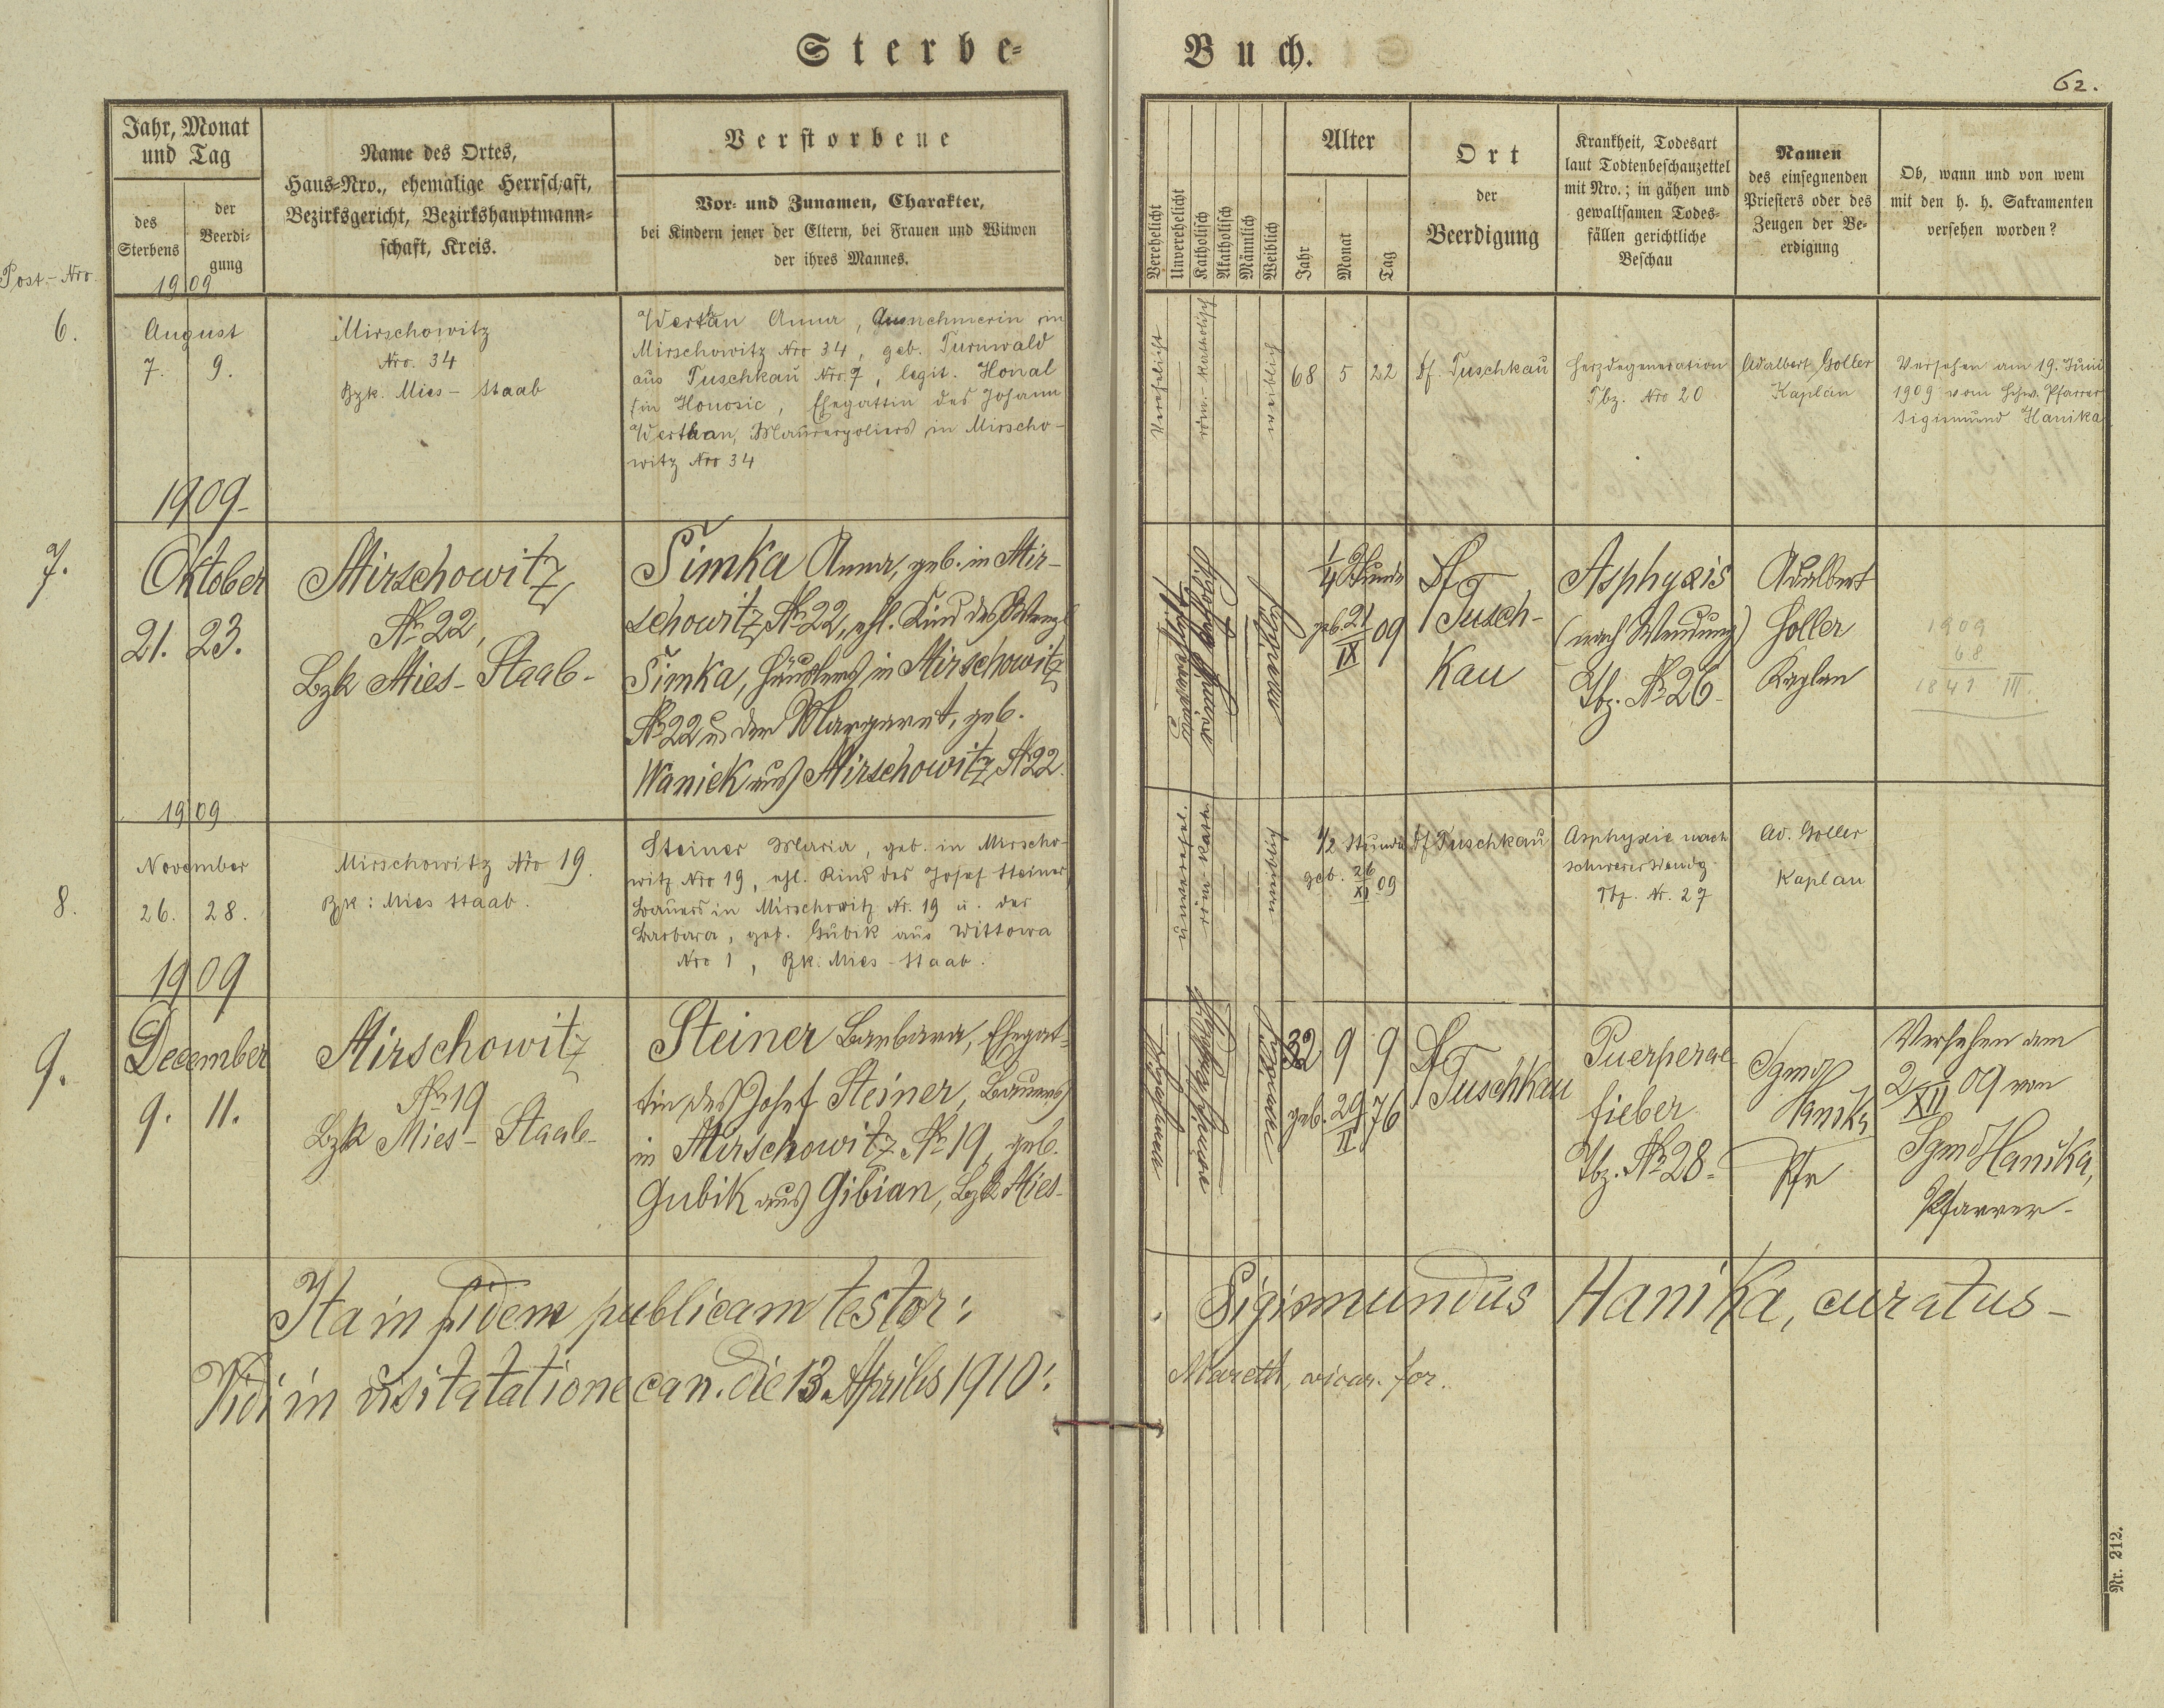 Sterbe-
Buch.
62.
Jahr, Monat
und Tag
des
Sterbens
der
Beerdi-
gung
Name des Ortes,
Haus-Nro., ehemalige Herrschaft,
Bezirksgericht, Bezirkshauptmann-
schaft, Kreis.
Verstorbene
Vor- und Zunamen, Charakter,
bei Kindern jener der Eltern, bei Frauen und Witwen
der ihres Mannes.
Verehelicht
Unverehelicht
Katholisch
Akatholisch
Männlich
Weiblich
Alter
Jahr
Monat
Tag
Ort
der
Beerdigung
Krankheit, Todesart
laut Todtenbeschauzettel
mit Nro.; in gähen und
gewaltsamen Todes-
fällen gerichtliche
Beschau
Namen
des einsegnenden
Priesters oder des
Zeugen der Be-
erdigung
Ob, wann und von wem
mit den h. h. Sakramenten
versehen worden?
Post.-Nro.
1909
6.
August
7. 9.
Mirschowitz
Nro. 34
Bzk. Mies - Staab
Werthan Anna, Ausnehmerin in
Mirschowitz Nro 34, geb. Turnwald
aus Tuschkau Nro 7, legit. Honal
in Honosic, Ehegattin des Johann
Werthan, Maurerpoliers in Mirscho-
witz Nro 34
verehelicht
röm.-katholisch
68 5 22
Df. Tuschkau
Herzdegeneration
Tbz. Nro 20
Adalbert Goller
Kaplan
Versehen am 19. Juni
1909 vom Hchw. Pfarrer
Sigismund Hanika
1909
7.
Oktober
21. 23.
Mirschowitz
No 22,
Bzk Mies - Staab -
Simka Anna, geb. in Mir-
schowitz No 22, ehl. Kind des Wenzl
Simka, Häuslers in Mirschowitz
No 22 u. der Margaret, geb.
Waniek aus Mirschowitz No 22.
1/4 Stunde
geb. 21/IX 09
Df
Tusch-
kau
Asphyxis
(nach Wendung)
Tbz. No 26 -
Adalbert
Goller
Kaplan
1909
68
1841 III.
1909
8.
November
26. 28.
Mirschowitz Nro 19.
Bzk: Mies Staab.
Steiner Maria, geb. in Mirscho-
witz Nro 19, ehl. Kind des Josef Steiner,
Bauers in Mirschowitz Nr. 19 u. der
Barbara, geb. Gubik aus Wittowa
Nro 1, Bzk. Mies - Staab.
unverehel.
röm-kath
1/2 Stunde
geb. 26/XI 09
Df Tuschkau
Asphyxie nach
schwerer Wendg
Tbz. Nr. 27
Ad. Goller
Kaplan
1909
9.
December
9. 11.
Mirschowitz
No 19
Bzk Mies - Staab -
Steiner Barbara, Ehegat-
tin des Josef Steiner, Bauers
in Mirschowitz No 19, geb.
Gubik aus Gibian, Bzk Mies -
32 9 9
geb. 29/II 76
Df
Tuschkau
Puerperal
fieber
Tbz. No 28 -
Sgmd
Hanika
Pfr
Versehen am
2/XII 09 von
Sgmd Hanika,
Pfarrer -
Ita in fidem publicam testor: Sigismundus Hanika, curatus -
Vidi in visitatatione can. die 13. Aprilis 1910: Mareth, vicar. for.
Nr. 212.